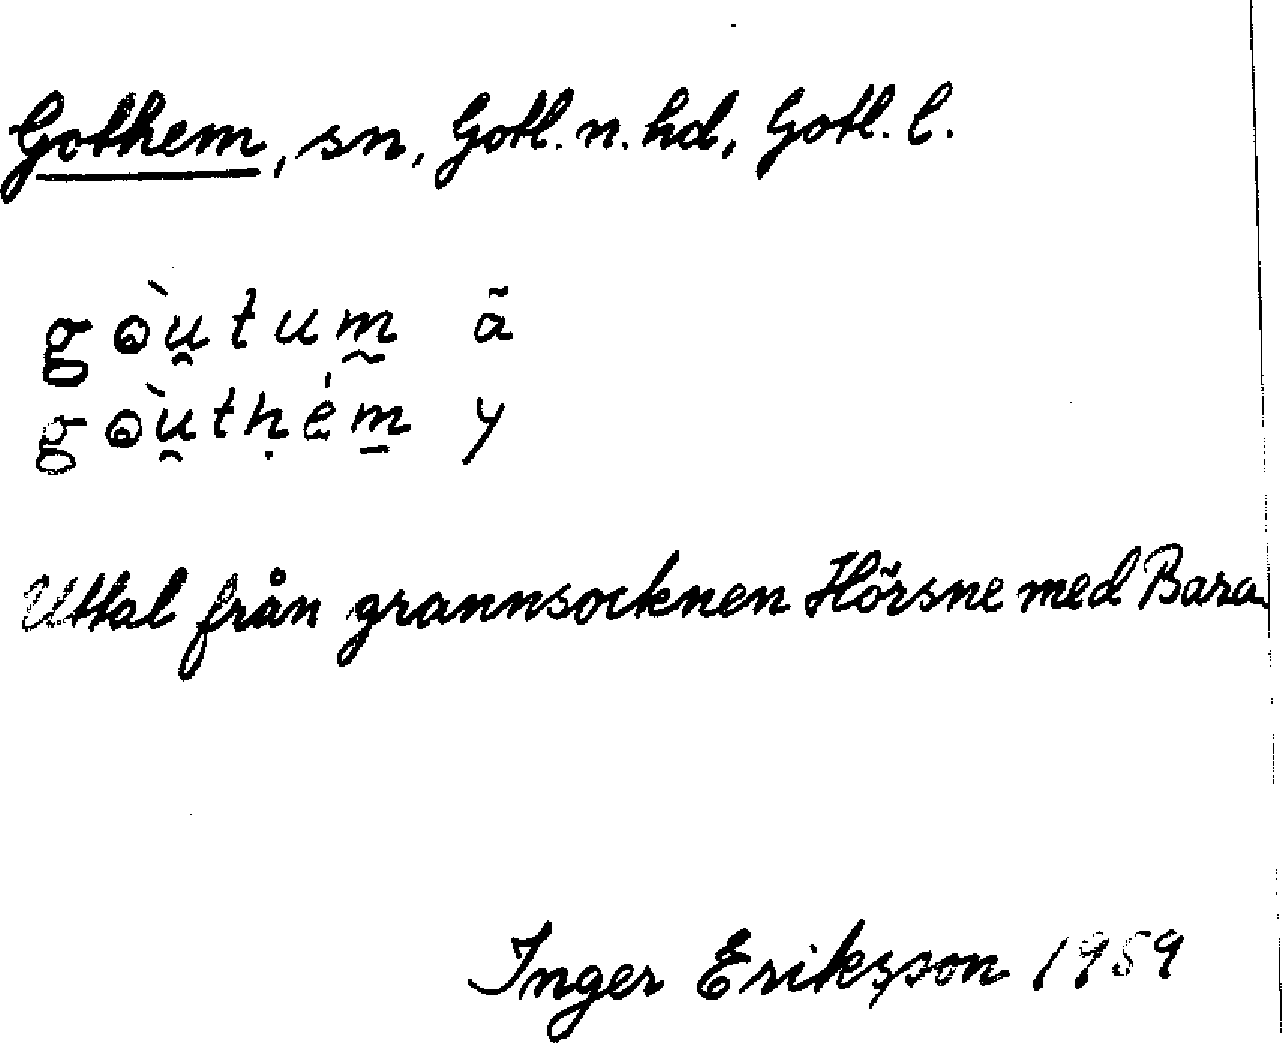 Gothem, sn, Gotl. n. hd, Gotl. l.
gɷ̀u̯tum̰ ã
gɷ̀u̯tḥém̱ y
Uttal från grannsocknen Hörsne med Bara.
Inger Eriksson 1959